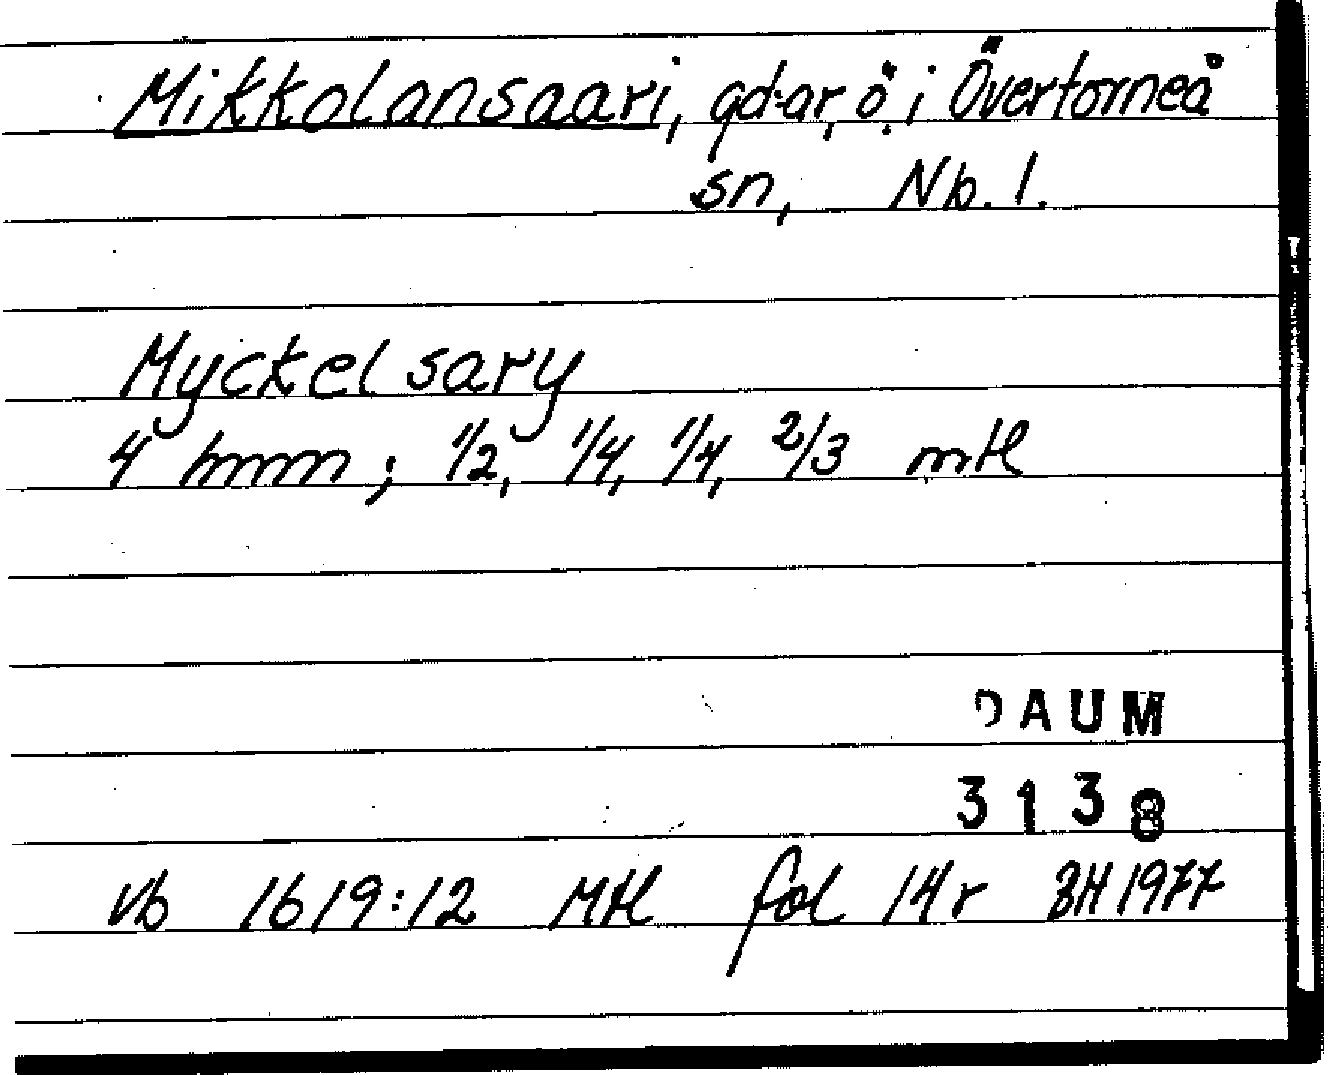 Mikkolansaari, gd:ar, ö. i Övertorneå
sn, Nb. l.
Myckelsary
4 hmm; 1/2, 1/4, 1/4, 2/3 mtl
DAUM
3138
Vb 1619:12 Mtl fol 14r BH 1977